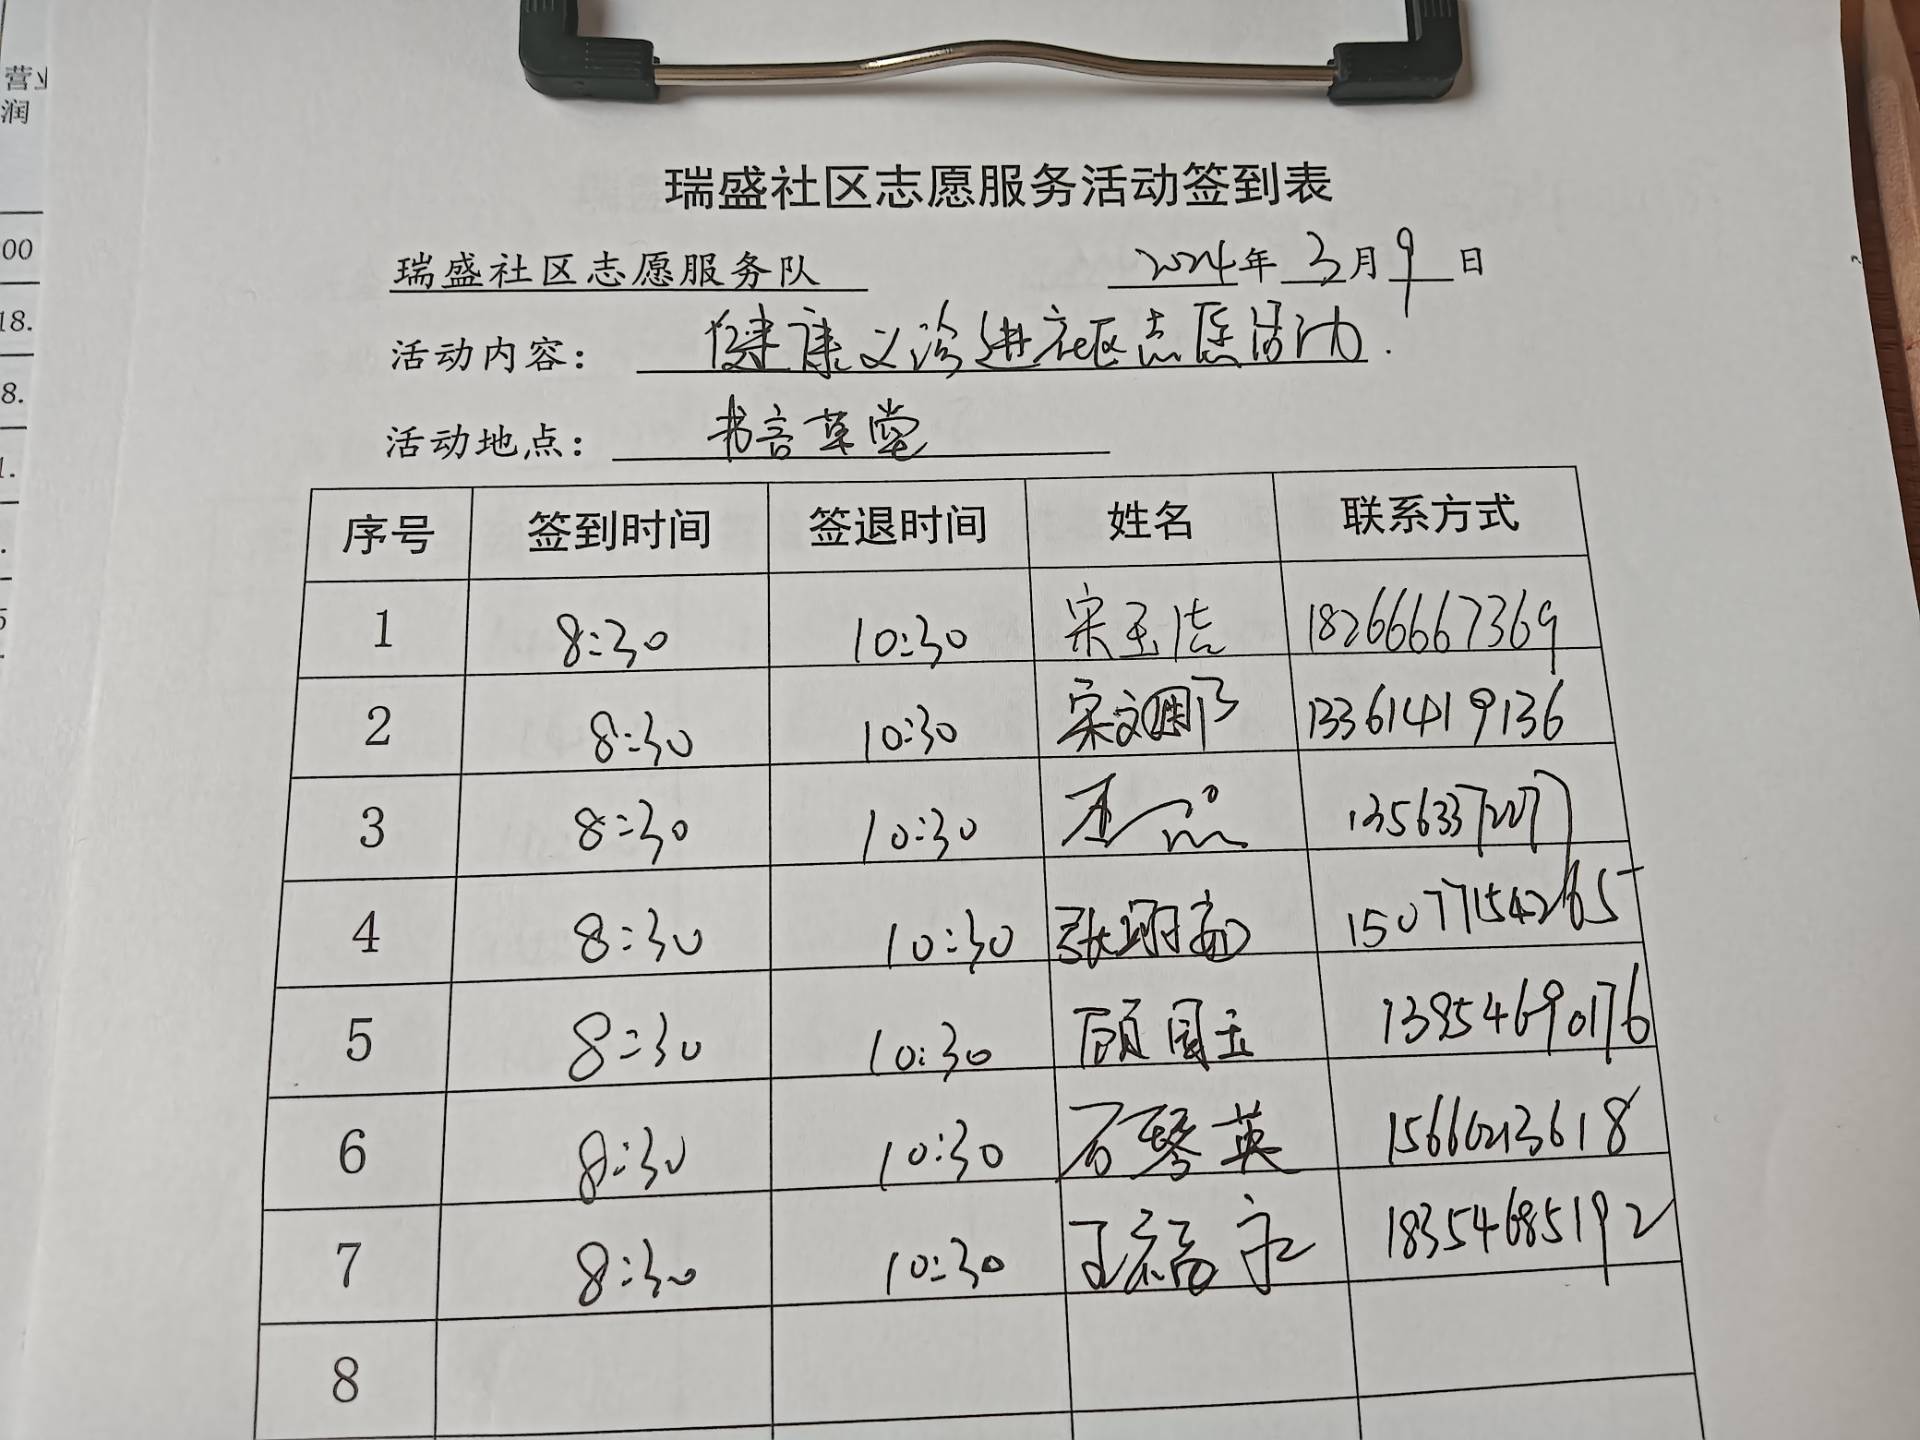 营业
润
00
18.
8.
1.
瑞盛社区志愿服务活动签到表
瑞盛社区志愿服务队 2024年 3月 9日
活动内容： 健康义诊进社区志愿活动.
活动地点： 书言草堂
序号 签到时间 签退时间 姓名 联系方式
1 8:30 10:30 宋玉洁 18266667369
2 8:30 10:30 宋文 13361419136
3 8:30 10:30
4 8:30 10:30 张 15077154265
5 8:30 10:30 顾国玉 13954690176
6 8:30 10:30 石琴英 15660213618
7 8:30 10:30 王福 18354685192
8